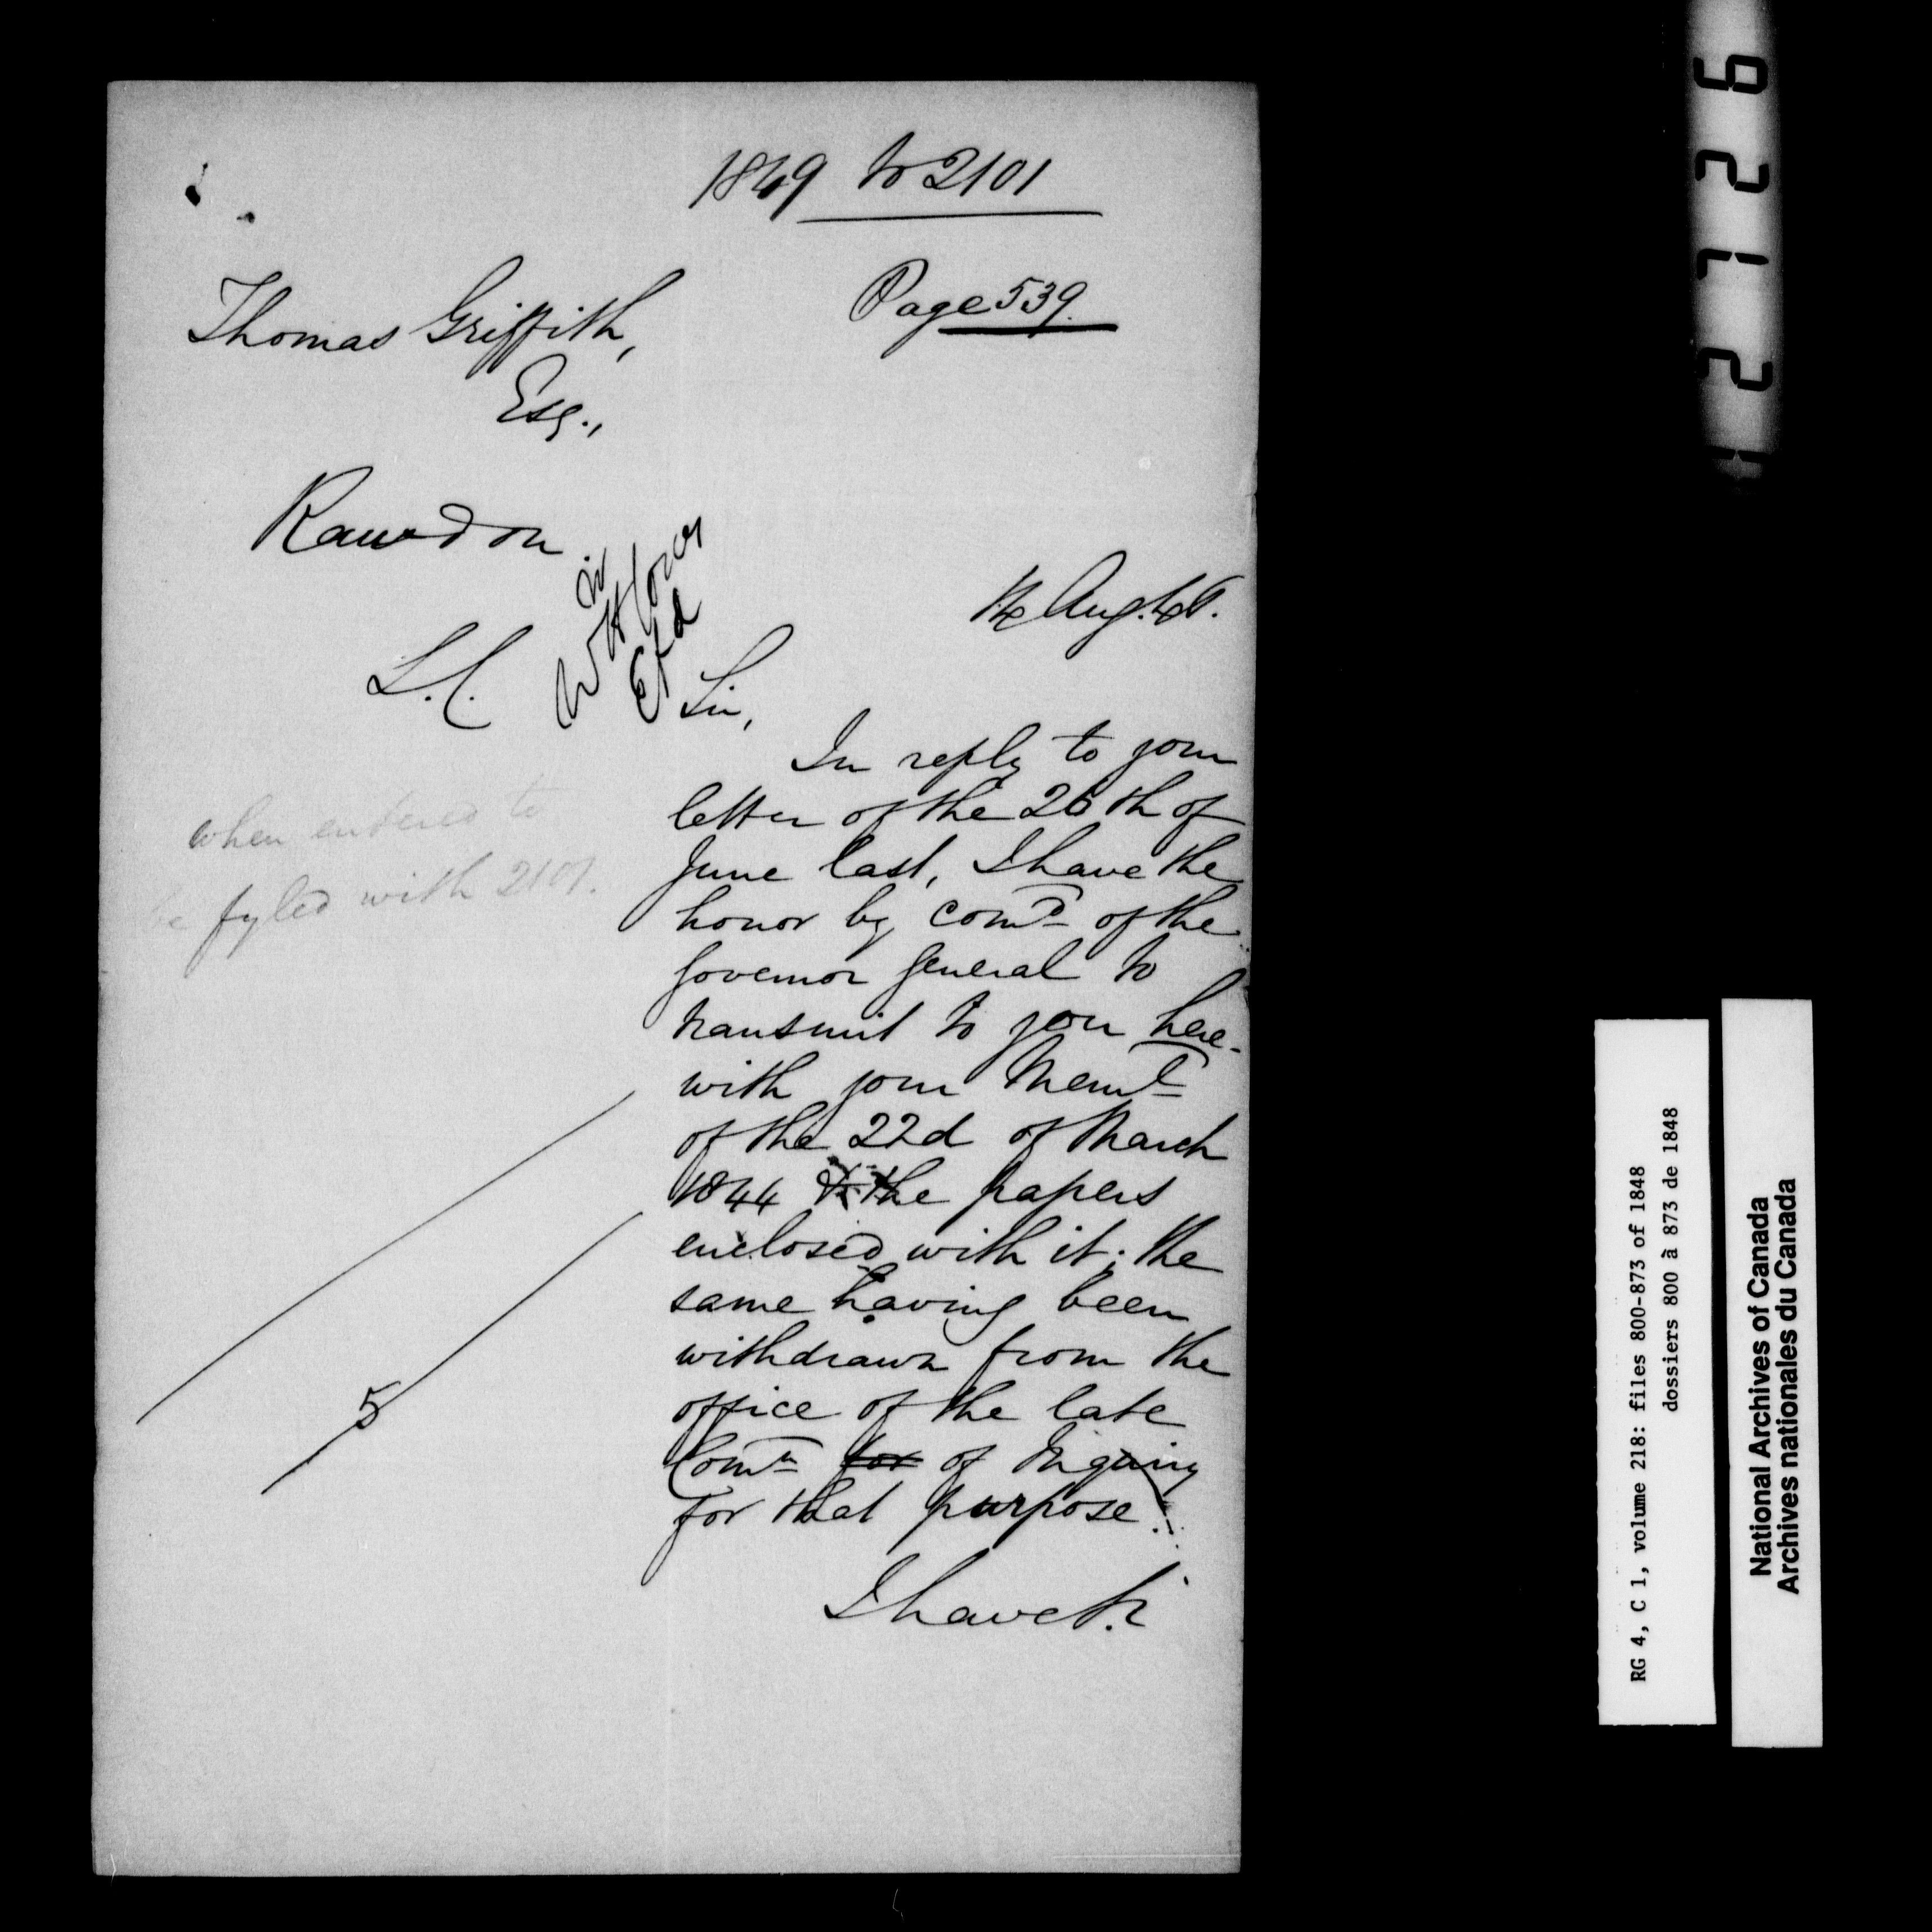 1849 to 2101
Page 539.
Thomas Griffith,
Esq.,
Rawdon.
L.C.
Ex'd
14 Aug. 48.
Sir,
In reply to your
letter of the 26th of
June last, I have the
honor by comd of the
Governor General to
transmit to you here-
with your Meml
of the 22d of March
1844 & the papers
enclosed with it; the
same having been
withdrawn from the
office of the late
Comn for of Inquiry
for that purpose.
I have &c
when entered to
be fyled with 2101.
5
RG 4, C 1, volume 218: files 800-873 of 1848
dossiers 800 à 873 de 1848
National Archives of Canada
Archives nationales du Canada